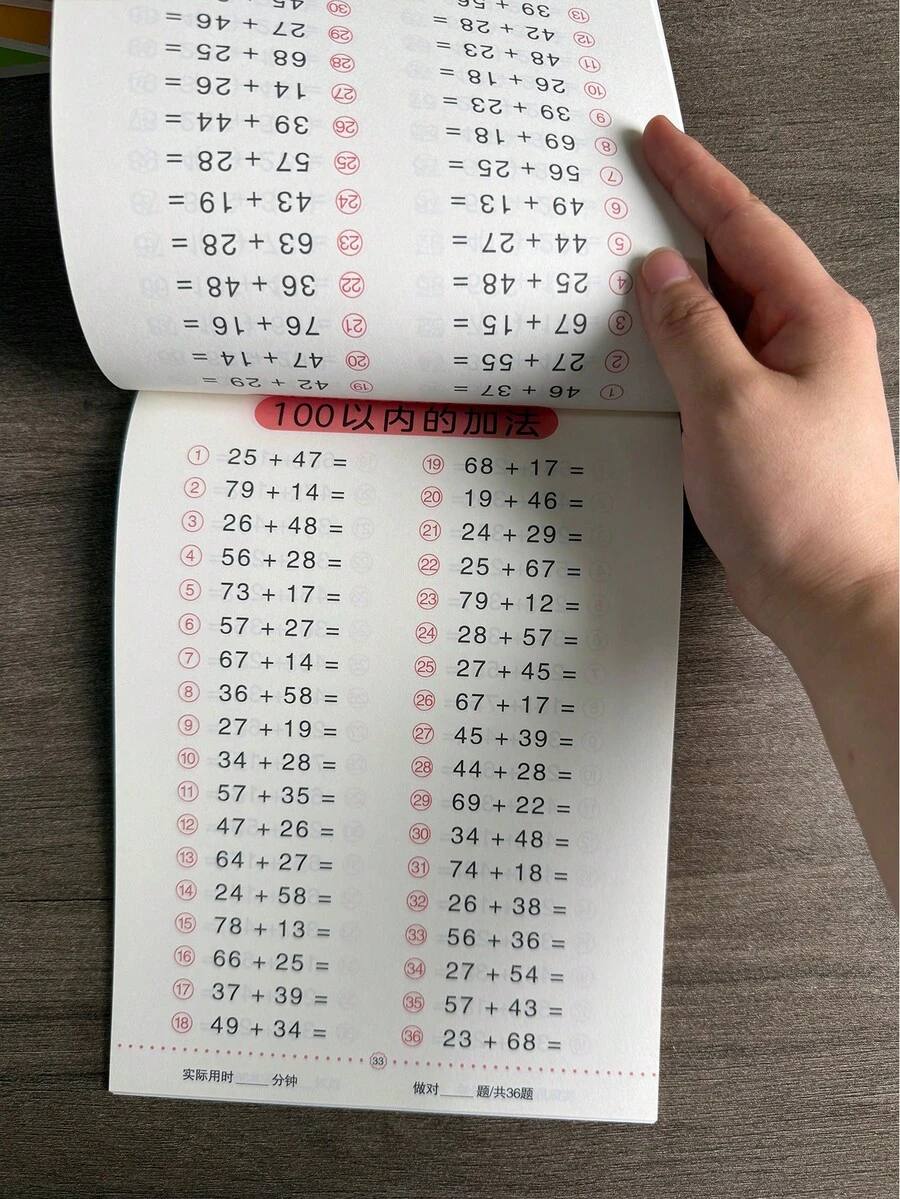 ① 46 + 37 =
② 27 + 55 =
③ 67 + 15 =
④ 25 + 48 =
⑤ 44 + 27 =
⑥ 49 + 13 =
⑦ 56 + 25 =
⑧ 69 + 18 =
⑨ 39 + 23 =
⑩ 26 + 18 =
⑪ 48 + 23 =
⑫ 42 + 28 =
⑬ 39 + 56
⑲ 42 + 29 =
⑳ 47 + 14 =
㉑ 76 + 16 =
㉒ 36 + 48 =
㉓ 63 + 28 =
㉔ 43 + 19 =
㉕ 57 + 28 =
㉖ 39 + 44 =
㉗ 14 + 26 =
㉘ 68 + 25 =
㉙ 27 + 46 =
㉚ 45
100以内的加法
① 25 + 47 =
② 79 + 14 =
③ 26 + 48 =
④ 56 + 28 =
⑤ 73 + 17 =
⑥ 57 + 27 =
⑦ 67 + 14 =
⑧ 36 + 58 =
⑨ 27 + 19 =
⑩ 34 + 28 =
⑪ 57 + 35 =
⑫ 47 + 26 =
⑬ 64 + 27 =
⑭ 24 + 58 =
⑮ 78 + 13 =
⑯ 66 + 25 =
⑰ 37 + 39 =
⑱ 49 + 34 =
⑲ 68 + 17 =
⑳ 19 + 46 =
㉑ 24 + 29 =
㉒ 25 + 67 =
㉓ 79 + 12 =
㉔ 28 + 57 =
㉕ 27 + 45 =
㉖ 67 + 17 =
㉗ 45 + 39 =
㉘ 44 + 28 =
㉙ 69 + 22 =
㉚ 34 + 48 =
㉛ 74 + 18 =
㉜ 26 + 38 =
㉝ 56 + 36 =
㉞ 27 + 54 =
㉟ 57 + 43 =
㊱ 23 + 68 =
33
实际用时____分钟
做对____ 题/共36题